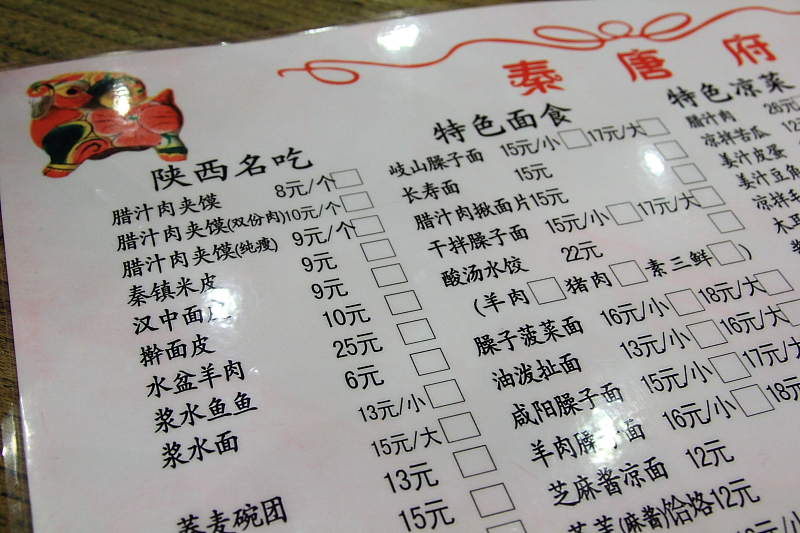 秦唐府
陕西名吃
腊汁肉夹馍 8元/个
腊汁肉夹馍(双份肉)10元/个
腊汁肉夹馍(纯瘦) 9元/个
秦镇米皮 9元
汉中面 9元
擀面皮 10元
水盆羊肉 25元
浆水鱼鱼 6元
浆水面 13元/小
15元/大
13元
荞麦碗团 15元
特色面食
岐山臊子面 15元/小 17元/大
长寿面 15元
腊汁肉揪面片15元
干拌臊子面 15元/小 17元/大
酸汤水饺 22元
(羊肉 猪肉 素三鲜 )
臊子菠菜面 16元/小 18元/大
油泼扯面 13元/小 16元/大
咸阳臊子面 15元/小 17元/
羊肉臊子面 16元/小 18元
芝麻酱凉面 12元
(麻酱)饸饹12元
特色凉菜
腊汁肉
凉拌苦瓜
姜汁皮蛋
姜汁豆角
凉拌